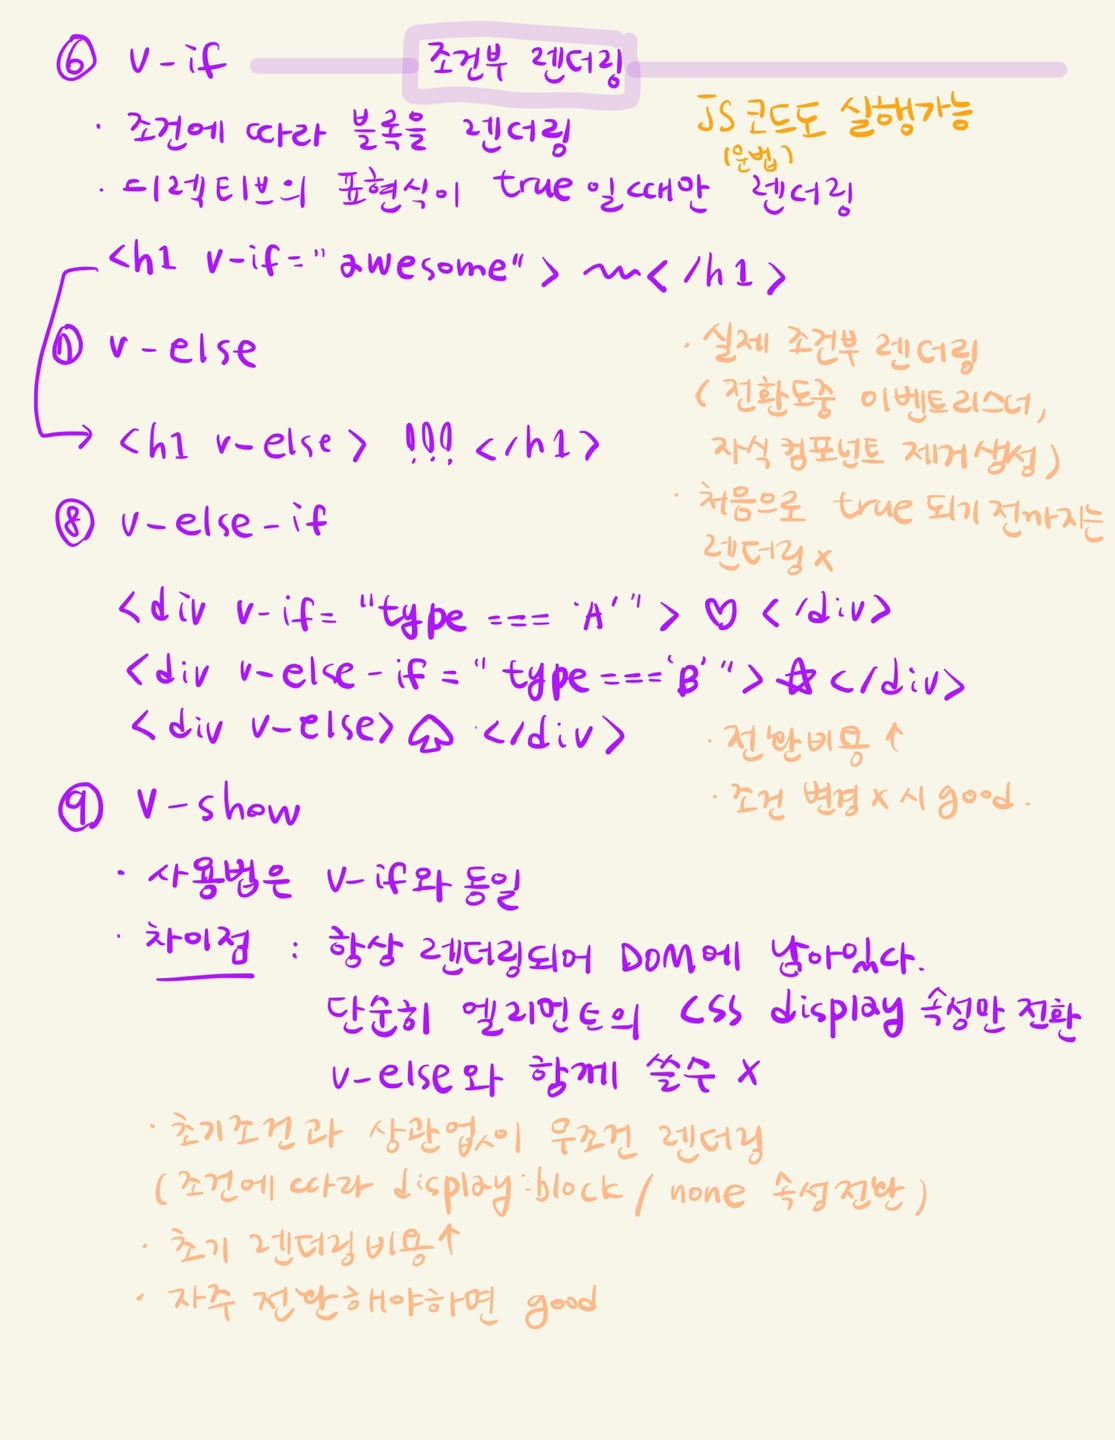 ⑥ v-if 조건부 렌더링
· 조건에 따라 블록을 렌더링
JS 코드도 실행가능
(문법)
· 디렉티브의 표현식이 true 일때만 렌더링
<h1 v-if="awesome"> ~~ </h1>
⑦ v-else
<h1 v-else> !!! </h1>
· 실제 조건부 렌더링
( 전환도중 이벤트리스너,
자식 컴포넌트 제거생성 )
· 처음으로 true 되기 전까지는
렌더링 x
⑧ v-else-if
<div v-if= "type === 'A'"> ♡ </div>
<div v-else-if = "type==='B'"> ☆ </div>
<div v-else> ♤ </div>
· 전환비용 ↑
· 조건 변경 x 시 good.
⑨ v-show
· 사용법은 v-if와 동일
· 차이점 : 항상 렌더링되어 DOM에 남아있다.
단순히 엘리먼트의 CSS display 속성만 전환
v-else와 함께 쓸수 x
· 초기조건과 상관없이 무조건 렌더링
( 조건에 따라 display:block / none 속성전환 )
· 초기 렌더링비용↑
· 자주 전환해야하면 good